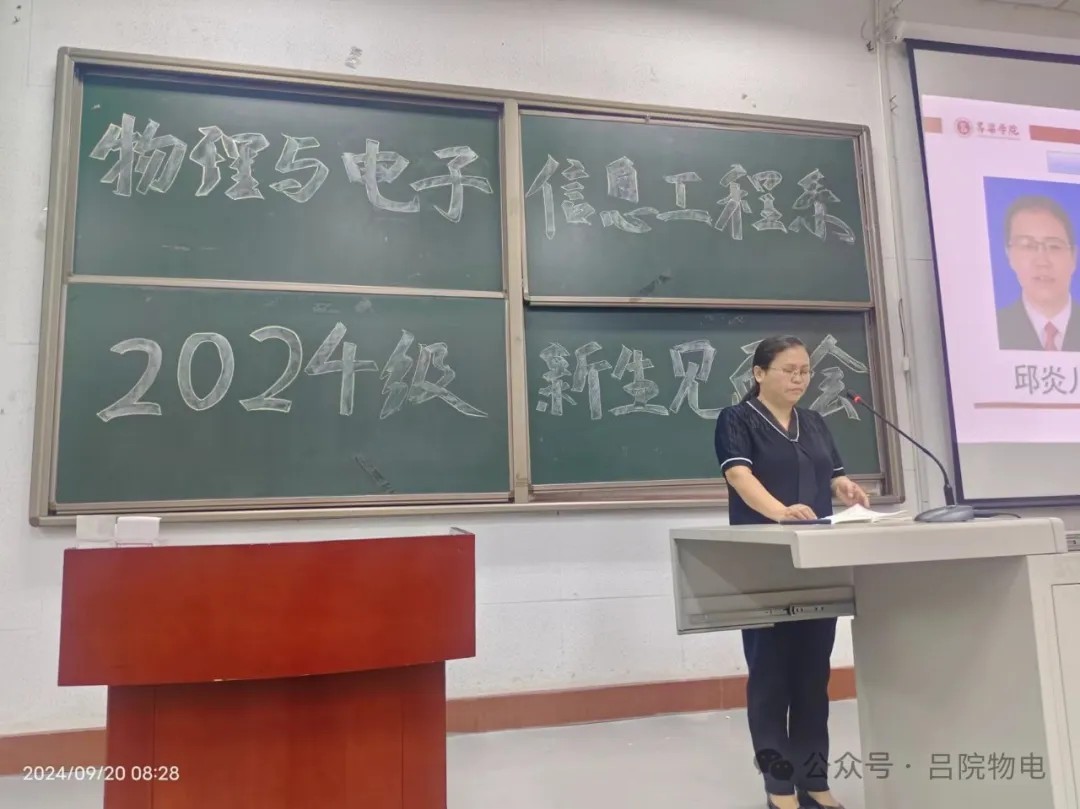 物理与电子信息工程系
2024级新生见面会
吕梁学院
邱炎儿
2024/09/20 08:28
公众号 · 吕院物电